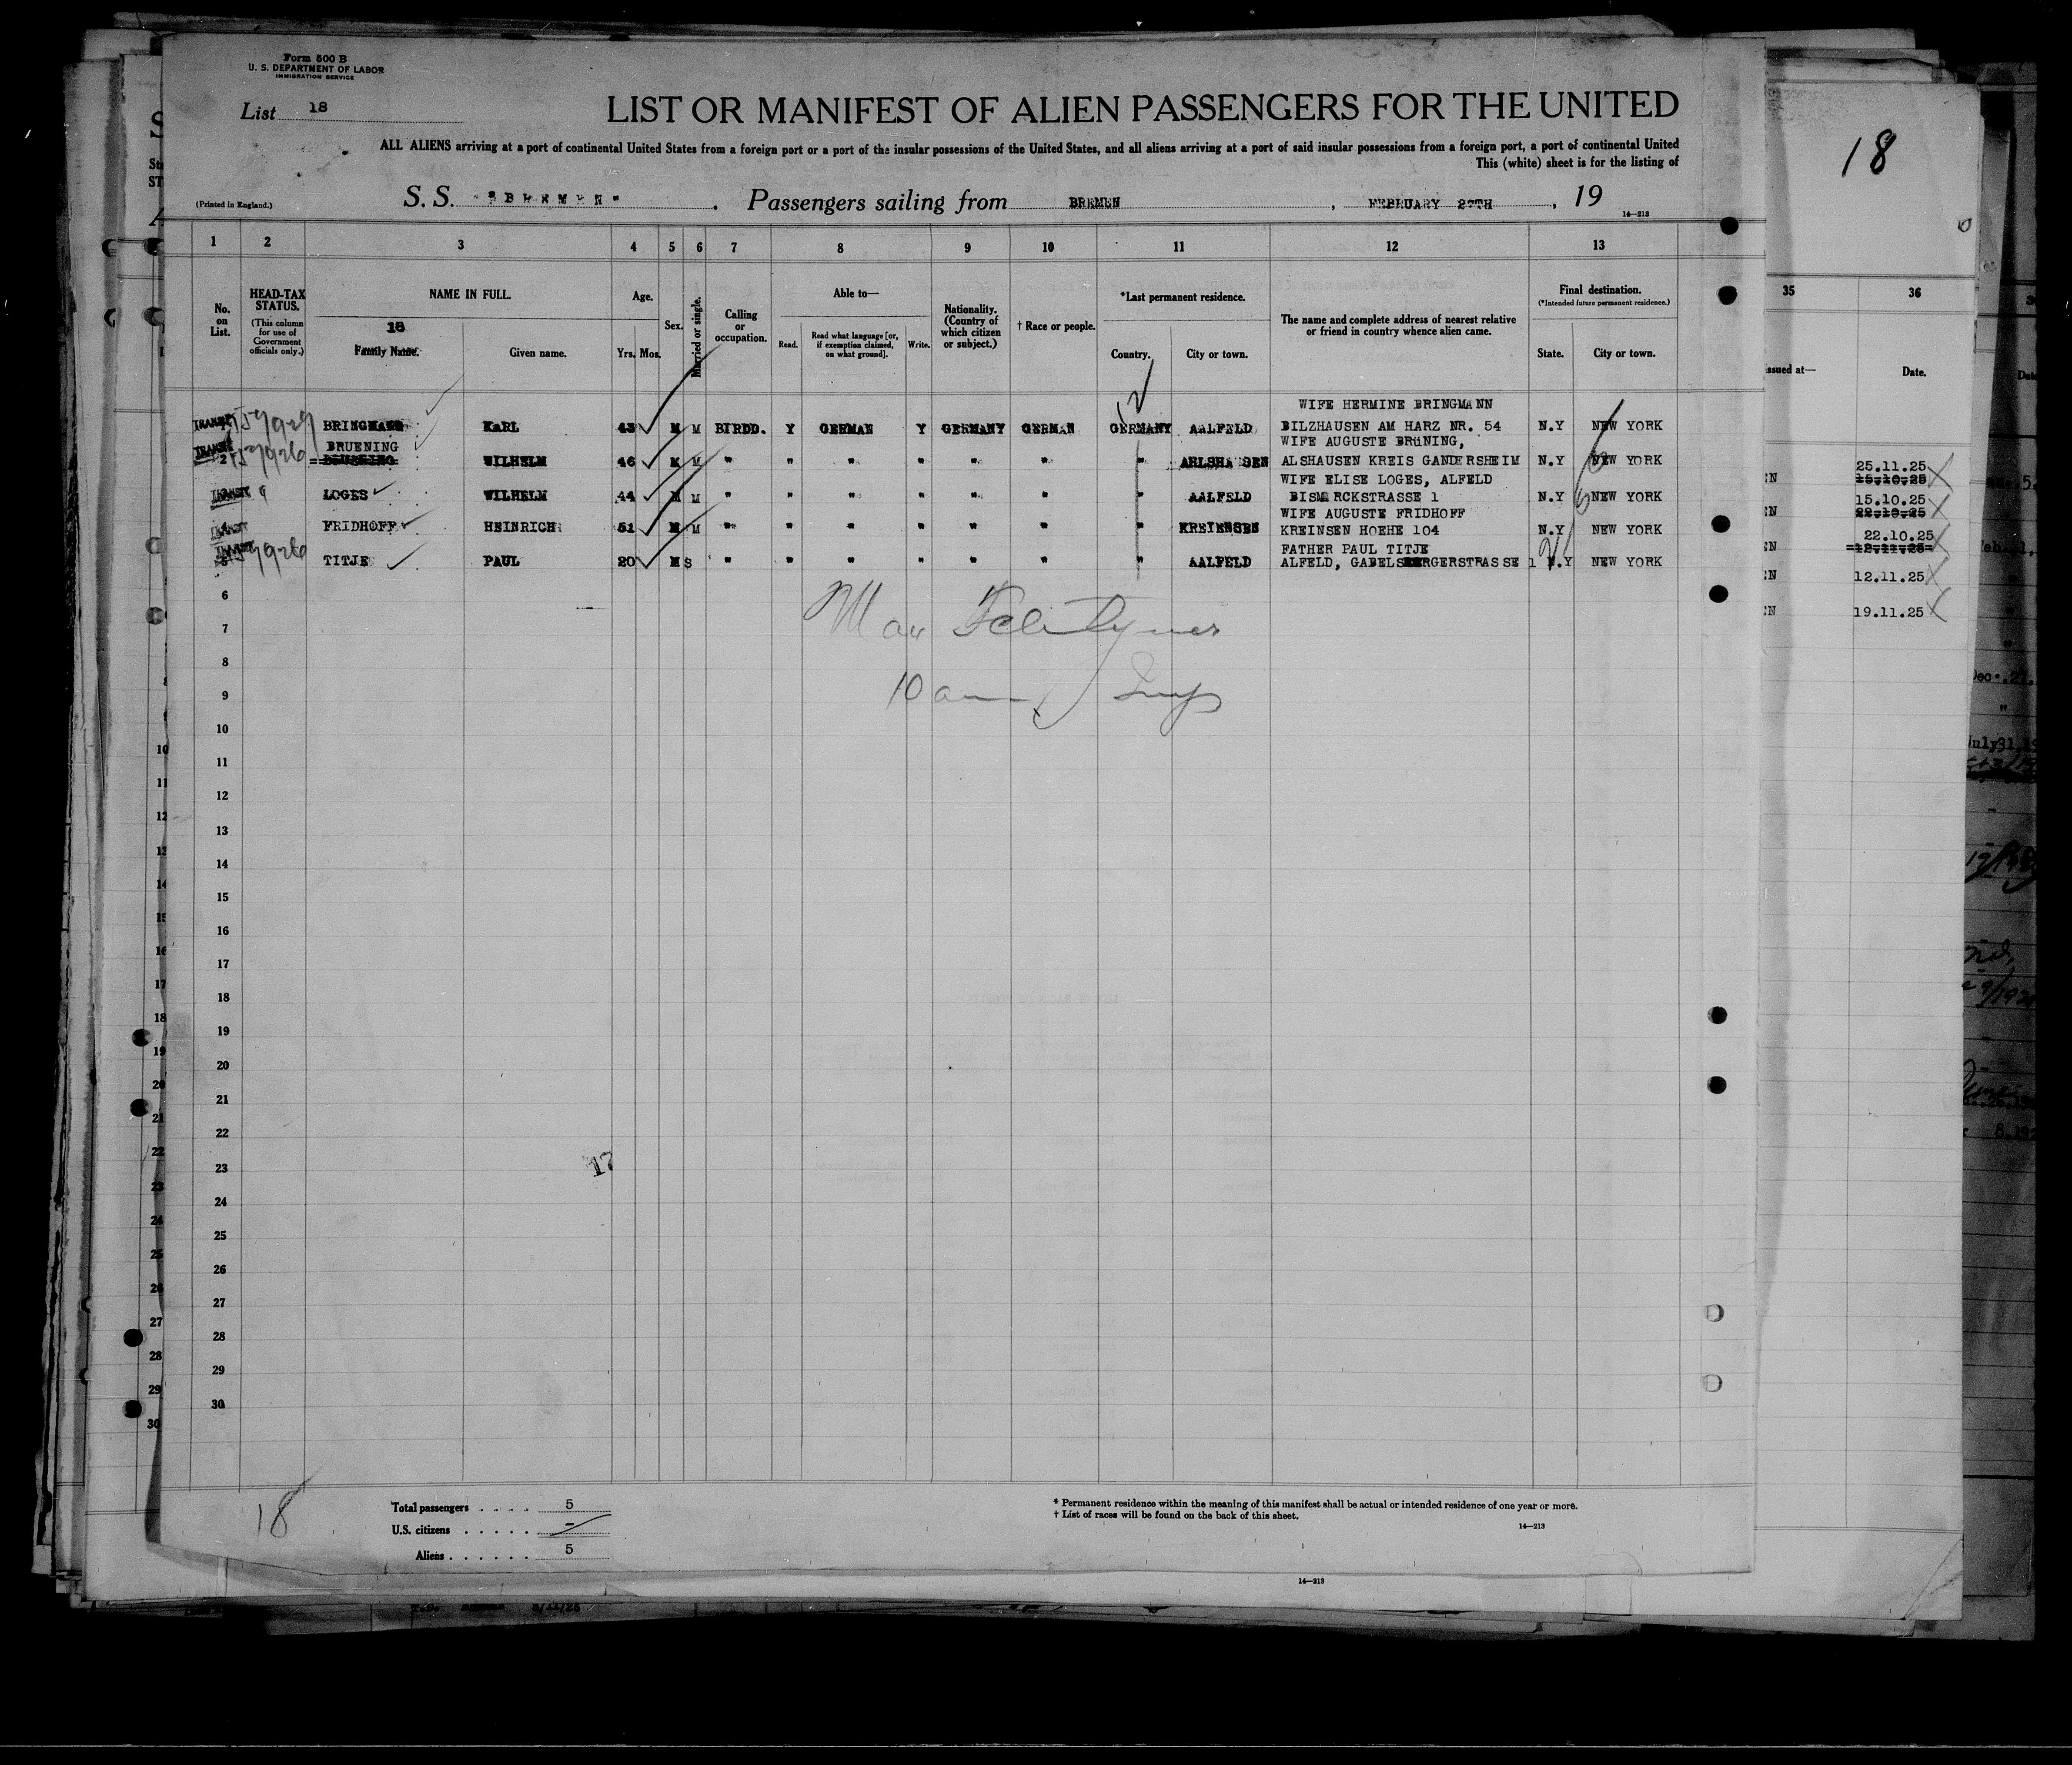 Form 500 B
U. S. DEPARTMENT OF LABOR
IMMIGRATION SERVICE
List 18
LIST OR MANIFEST OF ALIEN PASSENGERS FOR THE UNITED
ALL ALIENS arriving at a port of continental United States from a foreign port or a port of the insular possessions of the United States, and all aliens arriving at a port of said insular possessions from a foreign port, a port of continental United
This (white) sheet is for the listing of
18
(Printed in England.) S. S. "BREMEN" . Passengers sailing from BREMEN , FEBRUARY 27TH , 19
14—213
1 2 3 4 5 6 7 8 9 10 11 12 13
35 36
No. on List.
HEAD-TAX STATUS.
(This column for use of Government officials only.)
NAME IN FULL.
18
Family Name. Given name.
Age.
Yrs. Mos.
Sex.
Married or single.
Calling or occupation.
Able to—
Read. Read what language [or, if exemption claimed, on what ground]. Write.
Nationality. (Country of which citizen or subject.)
† Race or people.
*Last permanent residence.
Country. City or town.
The name and complete address of nearest relative or friend in country whence alien came.
Final destination.
(*Intended future permanent residence.)
State. City or town.
issued at— Date.
WIFE HERMINE BRINGMANN
TRANSIT BRINGMANN KARL 43 M M BIRDD. Y GERMAN Y GERMANY GERMAN GERMANY AALFELD BILZHAUSEN AM HARZ NR. 54 N.Y NEW YORK
BRUENING WIFE AUGUSTE BRüNING,
TRANSIT 2 WILHELM 46 M M " " " " " " " ARLSHAUSEN ALSHAUSEN KREIS GANDERSHEIM N.Y NEW YORK
WIFE ELISE LOGES, ALFELD
TRANSIT LOGES WILHELM 44 M M " " " " " " " AALFELD BISMARCKSTRASSE 1 N.Y NEW YORK
WIFE AUGUSTE FRIDHOFF
TRANSIT FRIDHOFF HEINRICH 51 M M " " " " " " " KREIENSEN KREINSEN HOEHE 104 N.Y NEW YORK
FATHER PAUL TITJE
5 TITJE PAUL 20 M S " " " " " " " AALFELD ALFELD, GABELSBERGERSTRASSE 1 N.Y NEW YORK
25.11.25
15.10.25
15.10.25
22.10.25
22.10.25
12.11.25
12.11.25
19.11.25
6
7
8
10 am
9
10
11
12
13
14
15
16
17
18
19
20
21
22
23
17
24
25
26
27
28
29
30
18
Total passengers . . . . 5
U.S. citizens . . . . . . –
Aliens . . . . . . 5
* Permanent residence within the meaning of this manifest shall be actual or intended residence of one year or more.
† List of races will be found on the back of this sheet.
14—213
14—213